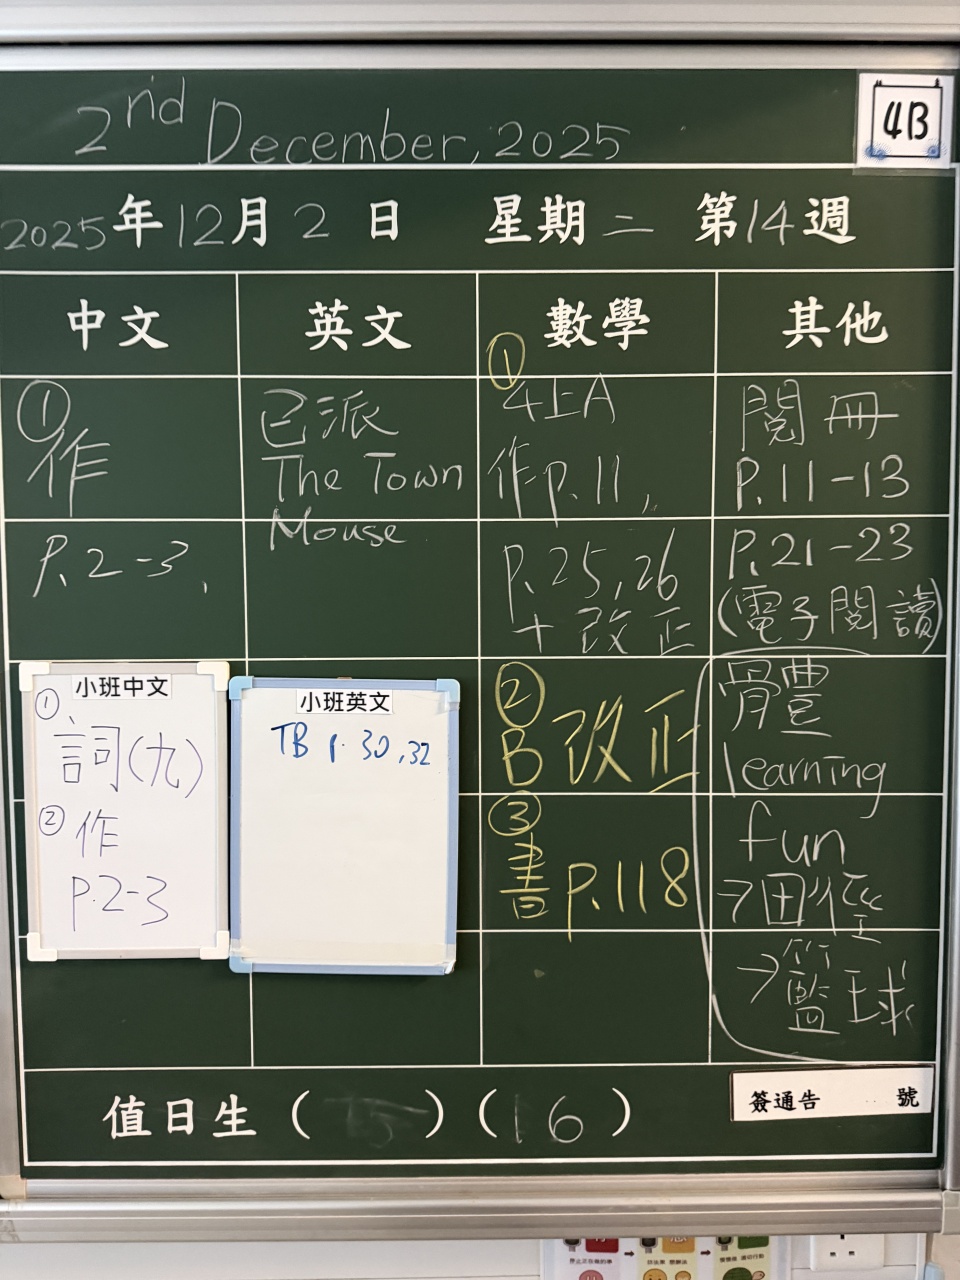 2nd December, 2025
4B
2025年12月2日 星期二 第14週
中文
英文
數學
其他
①
作
P.2-3.
已派
The Town
Mouse
①
4上A
作p.11,
P.25,26
+改正
②
B 改正
③
書 p.118
閱冊
P.11-13
P.21-23
(電子閱讀)
learning
fun
→田徑
→籃球
小班中文
①
詞(九)
②
作
P.2-3
小班英文
TB p.30,32
值日生(15)(16)
簽通告 號